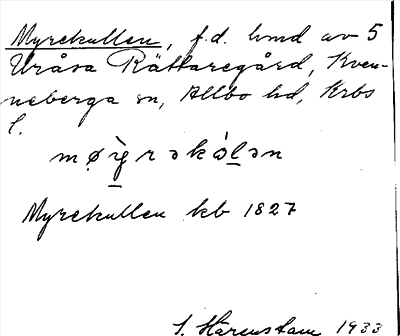 Myrekullen, f.d. hmd av 5
Uråsa Rättaregård, Kven-
neberga sn, Allbo hd, Krbs
l.
Myrekullen kb 1827
S. Härenstam 1933